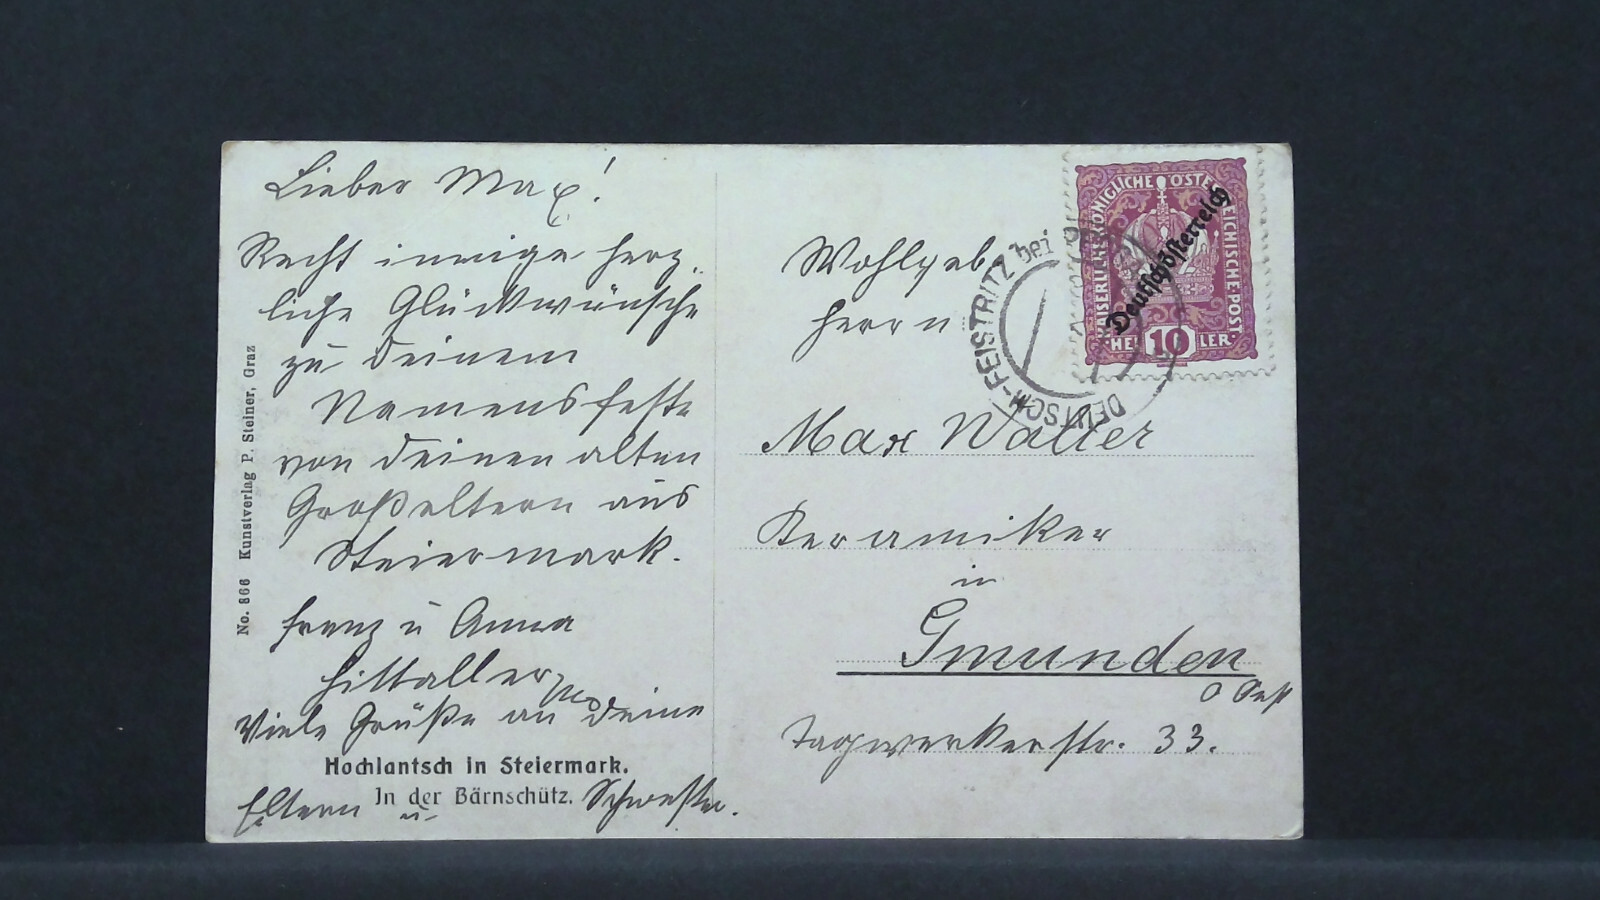 Lieber Max!
Recht innige herz-
liche Glückwünsche
zu Deinem
Namensfeste
von Deinen alten
Großeltern aus
Steiermark.
Franz u Anna
Hittaller
Viele Grüße an Deine
Eltern u Schwester.
Hochlantsch in Steiermark.
In der Bärnschütz.
No. 866 Kunstverlag P. Steiner, Graz
Wohlgeb
Herrn
Max Walter
Keramiker
in
Gmunden
O Öst
Tagwerkerstr. 33.
KAISERLICHE KÖNIGLICHE ÖSTERREICHISCHE POST
Deutschösterreich
HELLER
10
DEUTSCH-FEISTRITZ bei